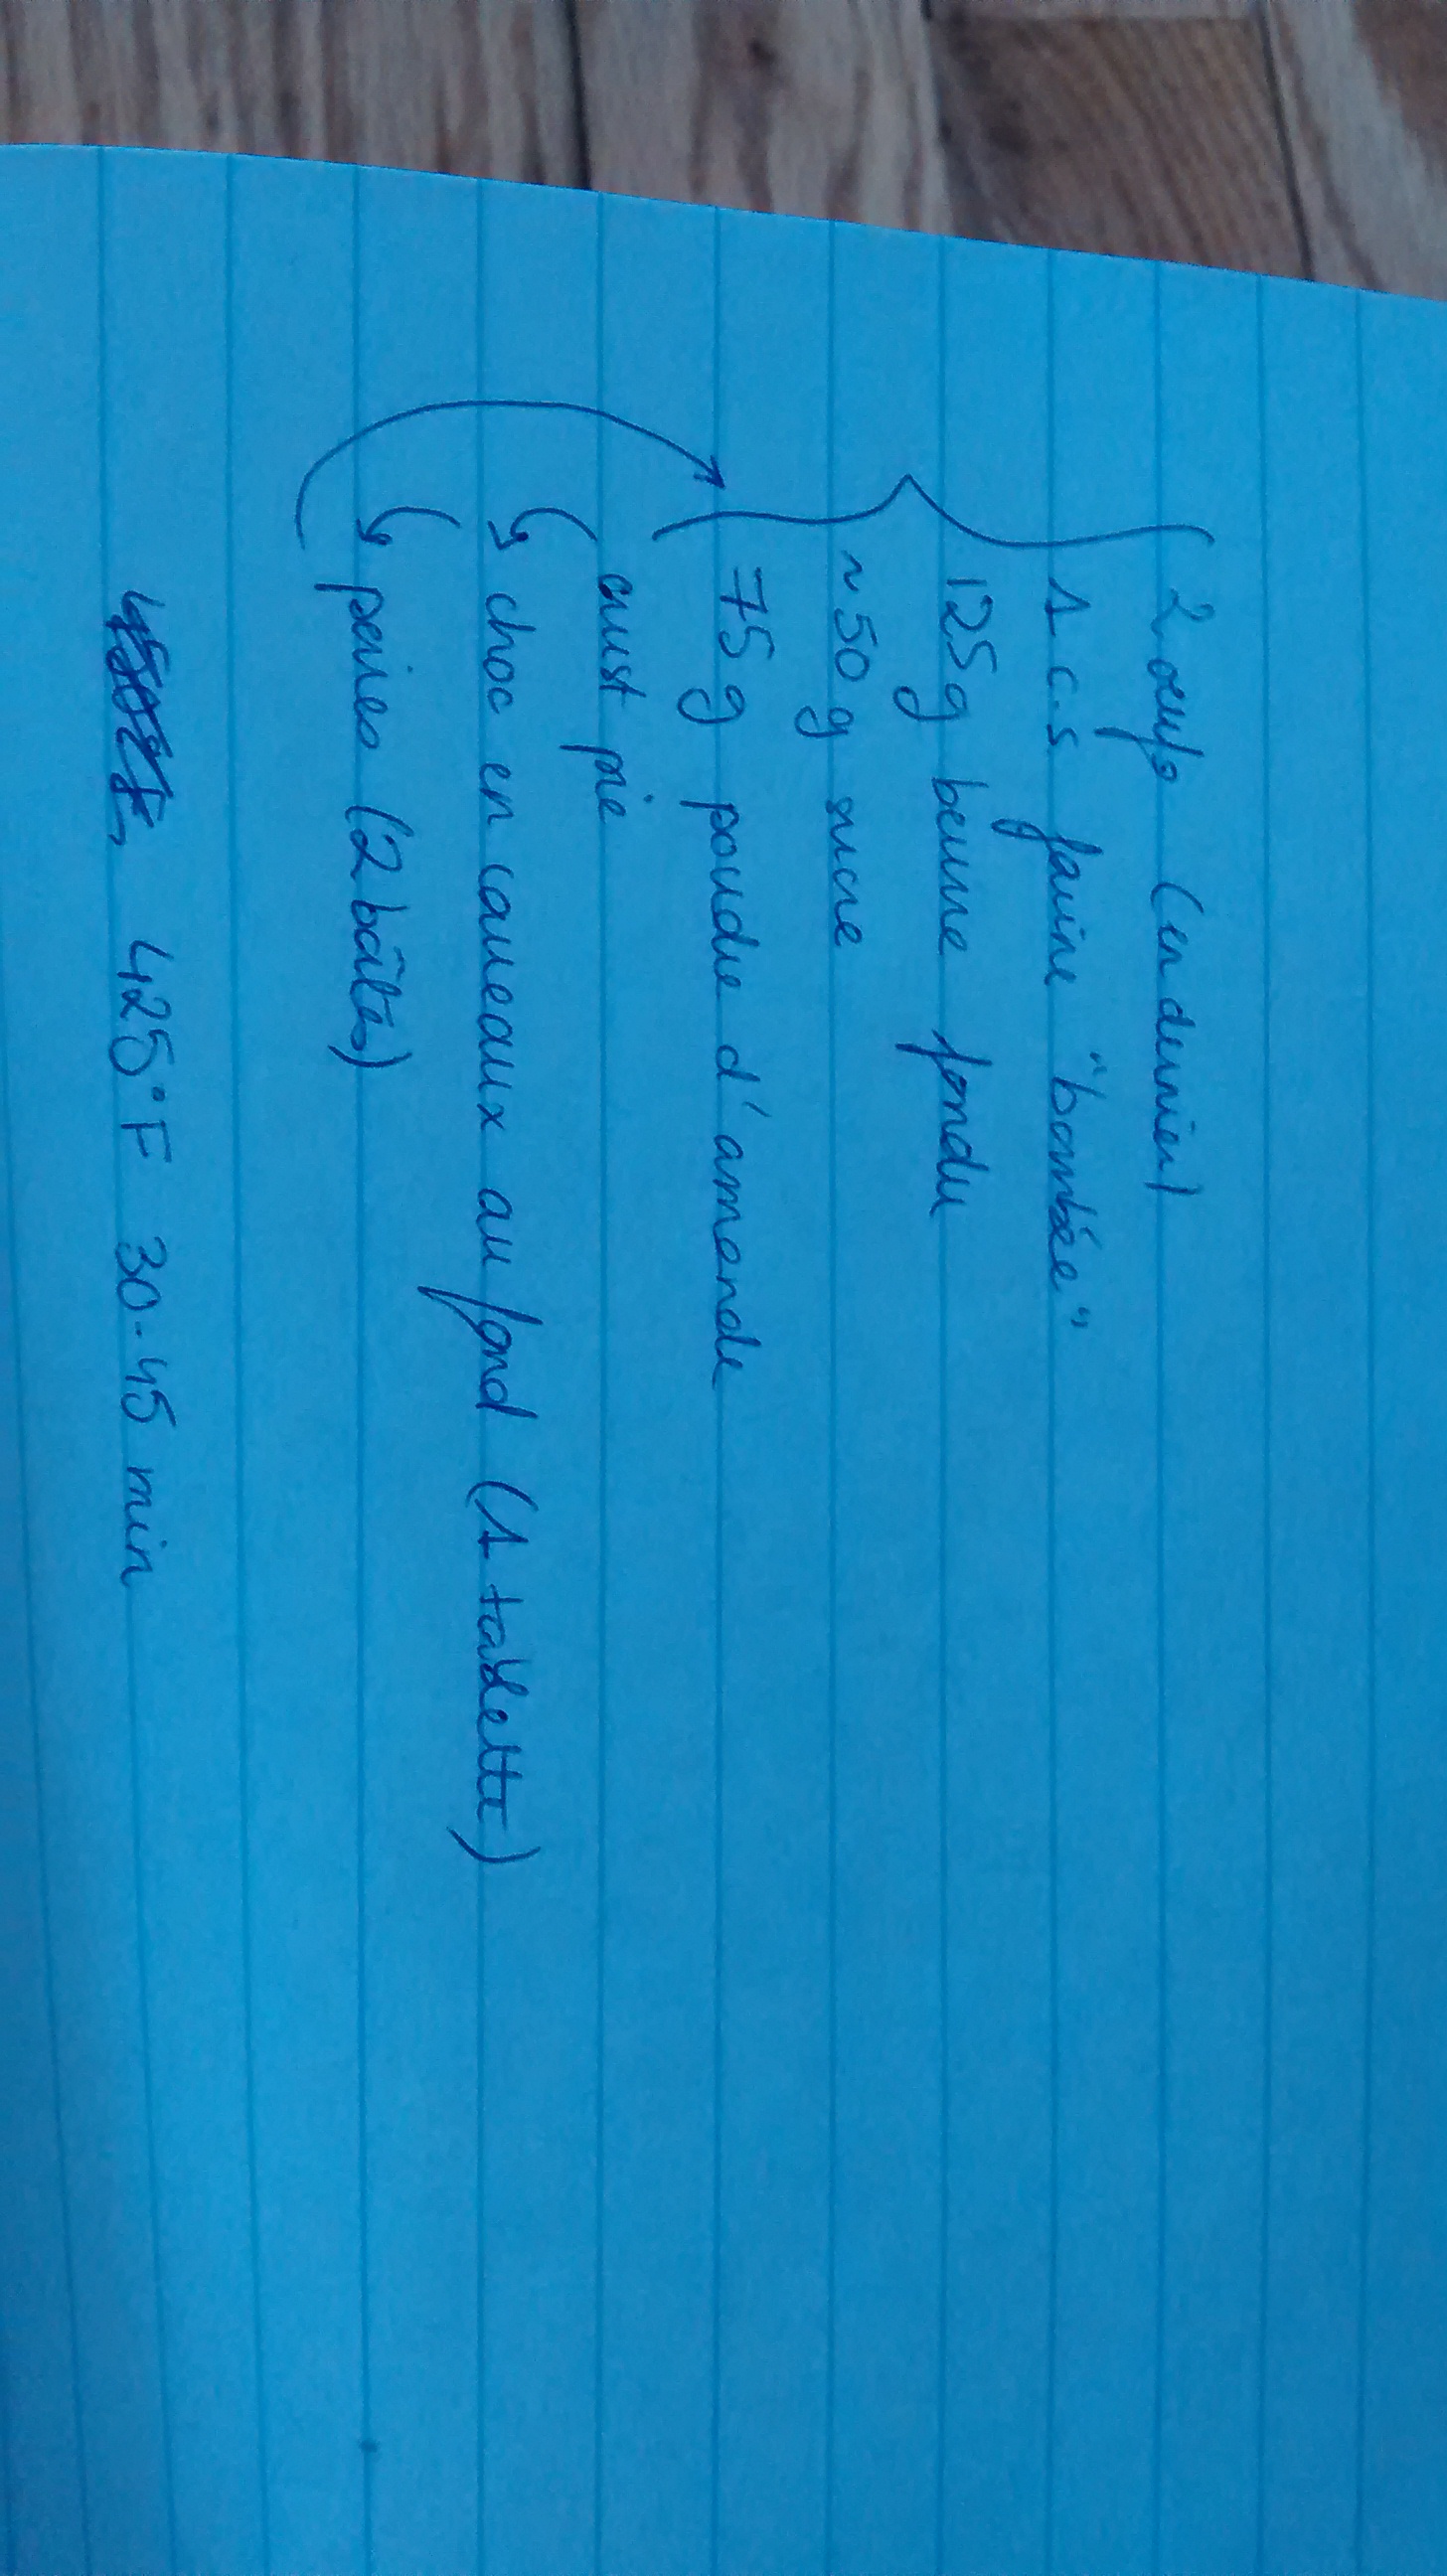 2 oeufs (en dernier)
1 c.s farine "bombée"
125g beurre fondu
~50 g sucre
75 g poudre d'amande
crust pie
choc en carreaux au fond (1 tablette)
poires (2 boîtes)
425°F 30-45 min